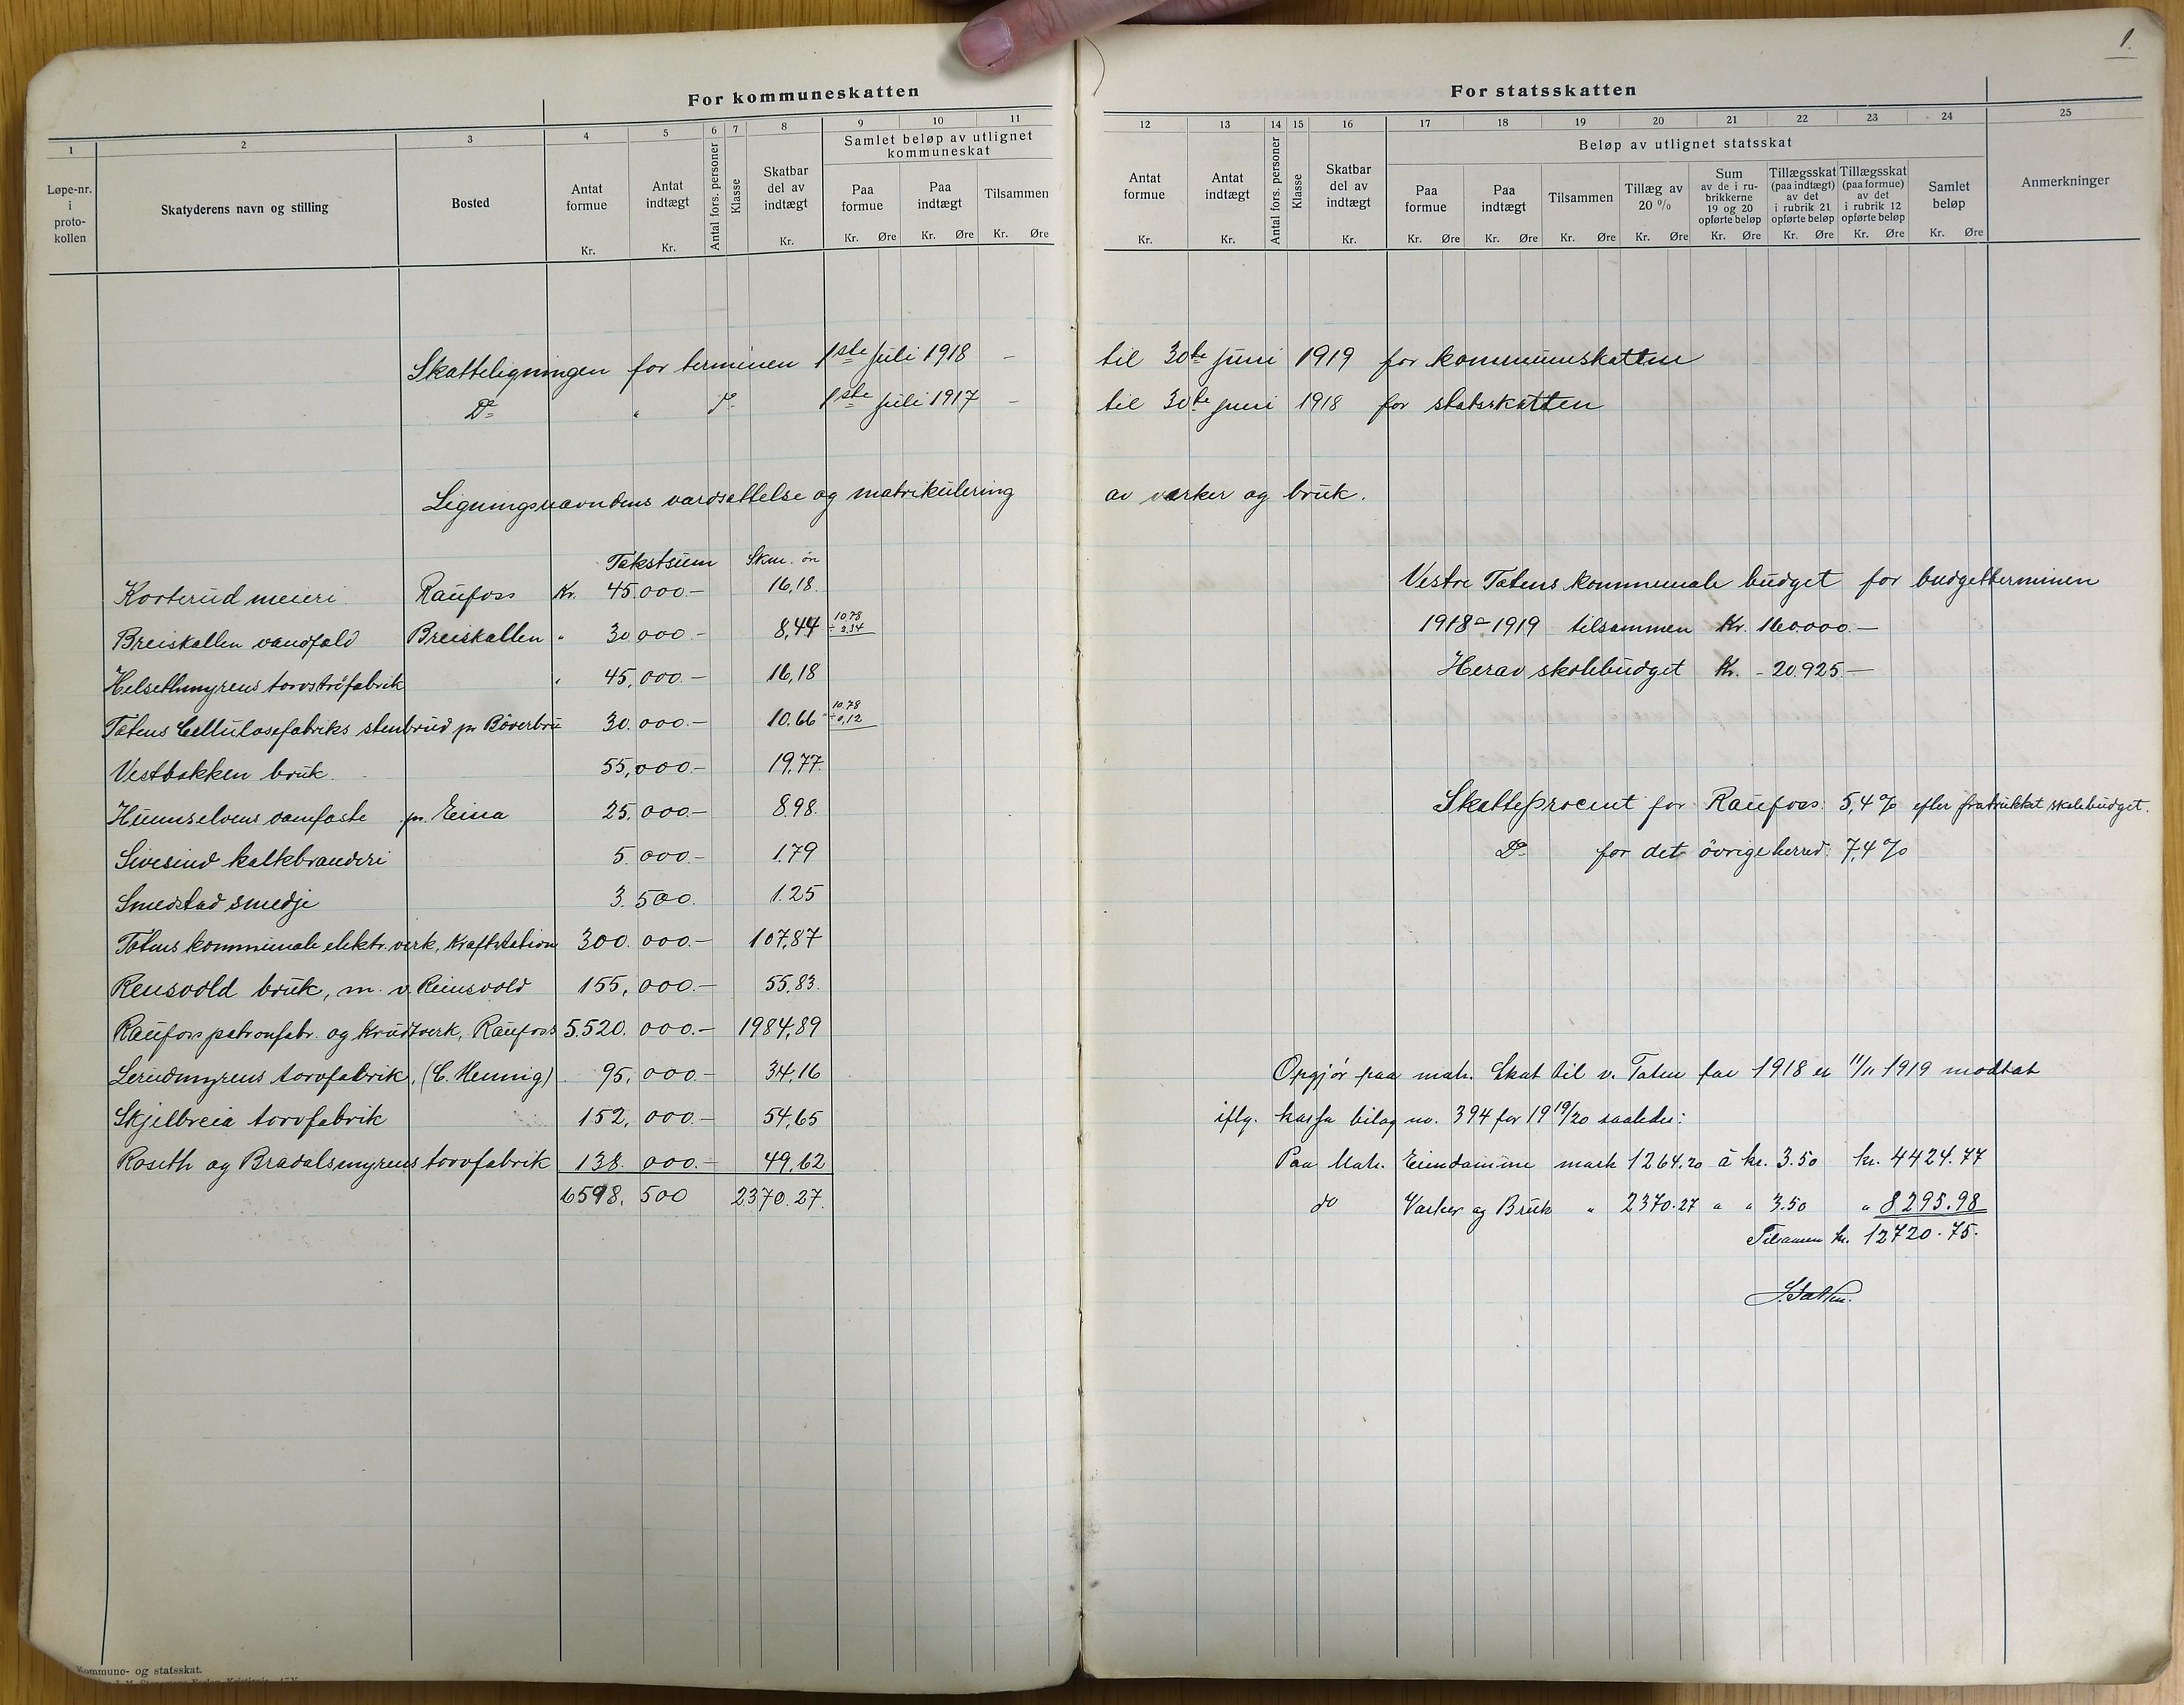 1.
For kommuneskatten
1 2 3 4 5 6 7 8 9 10 11
Løpe-nr. i proto-kollen
Skatyderens navn og stilling
Bosted
Antat formue Kr.
Antat indtægt Kr.
Antal fors. personer
Klasse
Skatbar del av indtægt Kr.
Samlet beløp av utlignet kommuneskat
Paa formue Kr. Øre
Paa indtægt Kr. Øre
Tilsammen Kr. Øre
For statsskatten
12 13 14 15 16 17 18 19 20 21 22 23 24 25
Antat formue Kr.
Antat indtægt Kr.
Antal fors. personer
Klasse
Skatbar del av indtægt Kr.
Beløp av utlignet statsskat
Paa formue Kr. Øre
Paa indtægt Kr. Øre
Tilsammen Kr. Øre
Tillæg av 20 % Kr. Øre
Sum av de i rubrikkerne 19 og 20 opførte beløp Kr. Øre
Tillægsskat (paa indtægt) av det i rubrik 21 opførte beløp Kr. Øre
Tillægsskat (paa formue) av det i rubrik 12 opførte beløp Kr. Øre
Samlet beløp Kr. Øre
Anmerkninger
Skatteligningen for terminen 1ste juli 1918 – til 30te juni 1919 for kommuneskatten
Do " do 1ste juli 1917 – til 30te juni 1918 for statsskatten
Ligningsnævndens værdsættelse og matrikulering av værker og bruk.
Takstsum Skm. ør
Korterud meieri Raufoss Kr. 45.000.– 16,18.
Breiskallen vandfald Breiskallen " 30.000.– 8,44 10.78 ÷ 2,34
Helsethmyrens torvstrøfabrik " 45,000.– 16,18
Totens Cellulosefabriks stenbrud pr Bøverbru 30.000.– 10.66 10.78 ÷ 0,12
Vestbakken bruk 55,000.– 19,77.
Hunnselvens damfæste pr. Eina 25.000.– 8.98.
Sivesind kalkbrænderi 5.000.– 1.79
Smedstad smedje 3.500. 1.25
Totens kommunale elektr. verk, Kraftstation 300.000.– 107,87
Reinsvold bruk, m. v. Reinsvold 155,000.– 55.83.
Raufoss patronfabr. og Krudtverk, Raufoss 5.520.000.– 1984,89
Lerudmyrens torvfabrik, (C. Hennig) 95,000.– 34,16
Skjelbreia torvfabrik 152,000.– 54,65
Roseth og Bradalsmyrens torvfabrik 138.000.– 49,62
6598.500 2370.27.
Vestre Totens kommunale budget for budgetterminen
1918–1919 tilsammen Kr. 160000.–
Herav skolebudget Kr. – 20.925.–
Skatteprocent for Raufoss: 5,4% efter fratrukket skolebudget.
Do for det øvrige herred: 7,4%
Opgjør paa matr. Skat til v. Toten for 1918 er 11/11 1919 modtat
iflg. kassa bilag no. 394 for 1919/20 saaledes:
Paa Matr. Eiendomme mark 1264,20 à kr. 3.50 kr. 4424.77
do Værker og Bruk " 2370.27 " " 3.50 " 8295.98
Tilsammen kr. 12720.75.
Kommune- og statsskat.